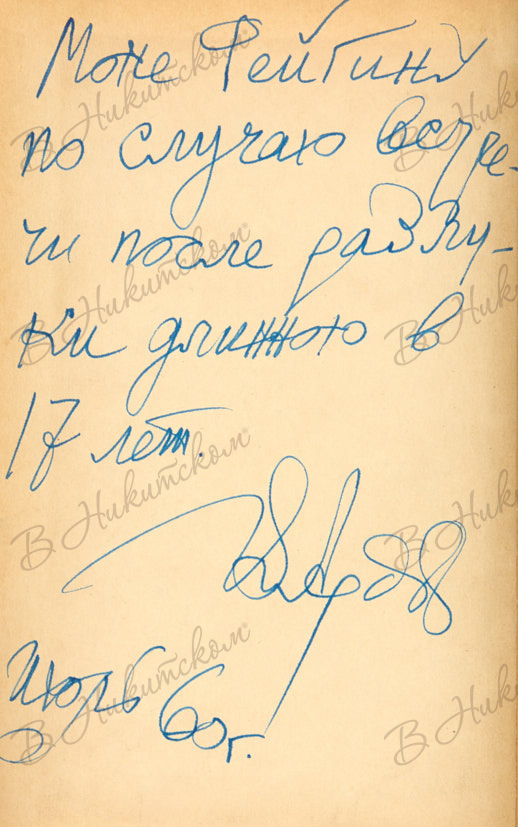 Моне Фейгину
по случаю встре-
чи после разлу-
ки длинною в
17 лет.
Июль 60 г.
В Никитском
В Никитском
В Никитском
В Никитском